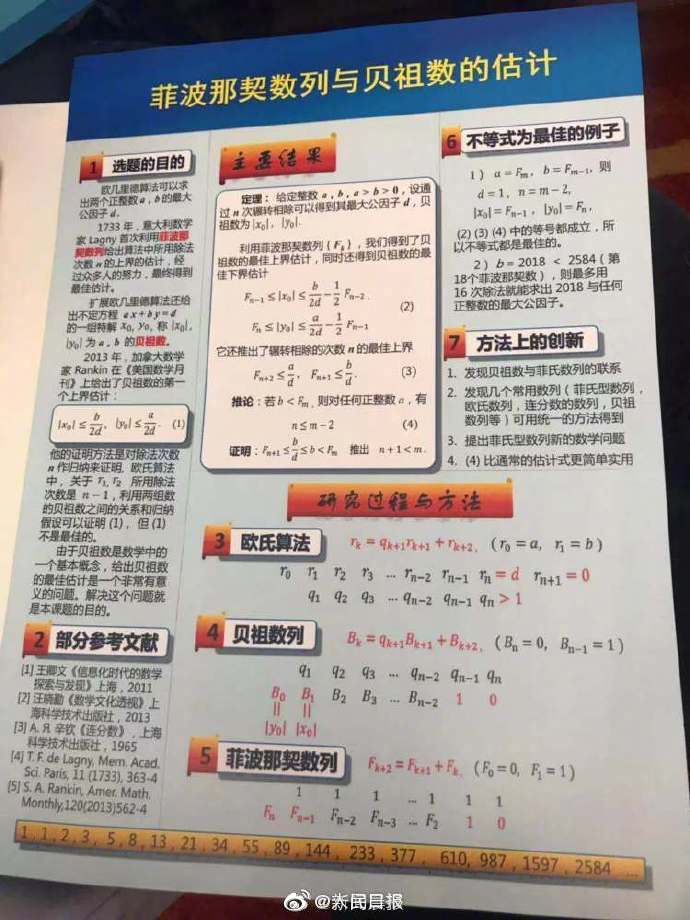 菲波那契数列与贝祖数的估计
1 选题的目的
欧几里德算法可以求
出两个正整数 a，b 的最大
公因子 d。
1733 年，意大利数学
家 Lagny 首次利用菲波那
契数列给出算法中所用除法
次数 n 的上界的估计，经
过众多人的努力，最终得到
最佳估计。
扩展欧几里德算法还给
出不定方程 ax+by=d
的一组特解 x₀, y₀, 称 |x₀|,
|y₀| 为 a，b 的贝祖数。
2013 年，加拿大数学
家 Rankin 在《美国数学月
刊》上给出了贝祖数的第一
个上界估计：
|x₀| ≤ b/2d, |y₀| ≤ a/2d. (1)
他的证明方法是对除法次数
n 作归纳来证明，欧氏算法
中，关于 r₁, r₂ 所用除法
次数是 n−1，利用两组数
的贝祖数之间的关系和归纳
假设可以证明 (1)，但 (1)
不是最佳的。
由于贝祖数是数学中的
一个基本概念，给出贝祖数
的最佳估计是一个非常有意
义的问题。解决这个问题就
是本课题的目的。
2 部分参考文献
[1] 王卿文《信息化时代的数学
探索与发现》上海，2011
[2] 汪晓勤《数学文化透视》上
海科学技术出版社，2013
[3] А. Я. 辛钦《连分数》，上海
科学技术出版社，1965
[4] T. F. de Lagny, Mem. Acad.
Sci. Paris, 11 (1733), 363-4
[5] S. A. Rankin, Amer. Math.
Monthly,120(2013)562-4
主要结果
定理：给定整数 a, b, a > b > 0，设通
过 n 次辗转相除可以得到其最大公因子 d，贝
祖数为 |x₀|，|y₀|.
利用菲波那契数列 {Fₖ}，我们得到了贝
祖数的最佳上界估计，同时还得到贝祖数的最
佳下界估计
Fₙ₋₁ ≤ |x₀| ≤ b/2d − 1/2 Fₙ₋₂ .
(2)
Fₙ ≤ |y₀| ≤ a/2d − 1/2 Fₙ₋₁
它还推出了辗转相除的次数 n 的最佳上界
Fₙ₊₂ ≤ a/d, Fₙ₊₁ ≤ b/d. (3)
推论：若 b < Fₘ，则对任何正整数 a，有
n ≤ m − 2 (4)
证明：Fₙ₊₁ ≤ b/d ≤ b < Fₘ 推出 n+1 < m.
6 不等式为最佳的例子
1）a = Fₘ，b = Fₘ₋₁，则
d = 1, n = m − 2,
|x₀| = Fₙ₋₁，|y₀| = Fₙ，
(2) (3) (4) 中的等号都成立，所
以不等式都是最佳的。
2）b = 2018 < 2584（第
18个菲波那契数），则最多用
16 次除法就能求出 2018 与任何
正整数的最大公因子。
7 方法上的创新
1. 发现贝祖数与菲氏数列的联系
2. 发现几个常用数列（菲氏型数列，
欧氏数列，连分数的数列，贝祖
数列等）可用统一的方法得到
3. 提出菲氏型数列新的数学问题
4. (4) 比通常的估计式更简单实用
研究过程与方法
3 欧氏算法 rₖ = qₖ₊₁rₖ₊₁ + rₖ₊₂,（r₀ = a, r₁ = b）
r₀ r₁ r₂ r₃ … rₙ₋₂ rₙ₋₁ rₙ = d rₙ₊₁ = 0
q₁ q₂ q₃ … qₙ₋₂ qₙ₋₁ qₙ > 1
4 贝祖数列 Bₖ = qₖ₊₁Bₖ₊₁ + Bₖ₊₂,（Bₙ = 0, Bₙ₋₁ = 1）
q₁ q₂ q₃ … qₙ₋₂ qₙ₋₁ qₙ
B₀ B₁ B₂ B₃ … Bₙ₋₂ 1 0
|| ||
|y₀| |x₀|
5 菲波那契数列 Fₖ₊₂ = Fₖ₊₁ + Fₖ,（F₀ = 0, F₁ = 1）
1 1 1 … 1 1 1
Fₙ Fₙ₋₁ Fₙ₋₂ Fₙ₋₃ … F₂ 1 0
1, 1, 2, 3, 5, 8, 13, 21, 34, 55, 89, 144, 233, 377, 610, 987, 1597, 2584 …
@新民晚报